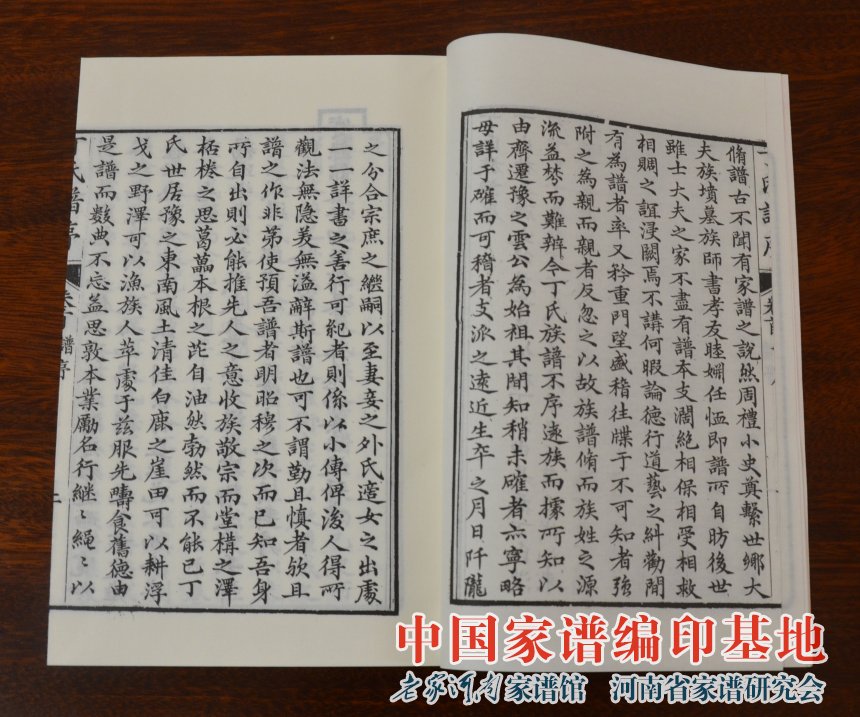 脩譜古不聞有家譜之說然周禮小史奠繫世鄉大
夫族墳墓族師書孝友睦婣任恤即譜所自昉後世
雖士大夫之家不盡有譜本支濶絶相保相受相救
相賙之誼浸闕焉不講何暇論德行道藝之糾勸間
有為譜者率又矜重門望盛稽往牒于不可知者強
附之為親而親者反忽之以故族譜脩而族姓之源
流益棼而難辨今丁氏族譜不序遠族而據所知以
由齊遷豫之雲公為始祖其間知稍未確者亦寧略
毋詳于確而可稽者支派之遠近生卒之月日阡隴
之分合宗庶之繼嗣以至妻妾之外氏適女之出處
一一詳書之善行可紀者則係以小傳俾後人得所
觀法無隐美無溢辭斯譜也可不謂勤且慎者歟且
譜之作非苐使預吾譜者明昭穆之次而已知吾身
所自出則必能推先人之意收族敬宗而堂構之澤
桮棬之思葛藟本根之芘自油然勃然而不能已丁
氏世居豫之東南風土清佳白鹿之崖田可以耕浮
戈之野澤可以漁族人萃處于兹服先疇食舊德由
是譜而數典不忘益思敦本業勵名行継〻繩〻以
丁氏譜序
卷首
譜序
中国家谱编印基地
老家河南家谱馆 河南省家谱研究会